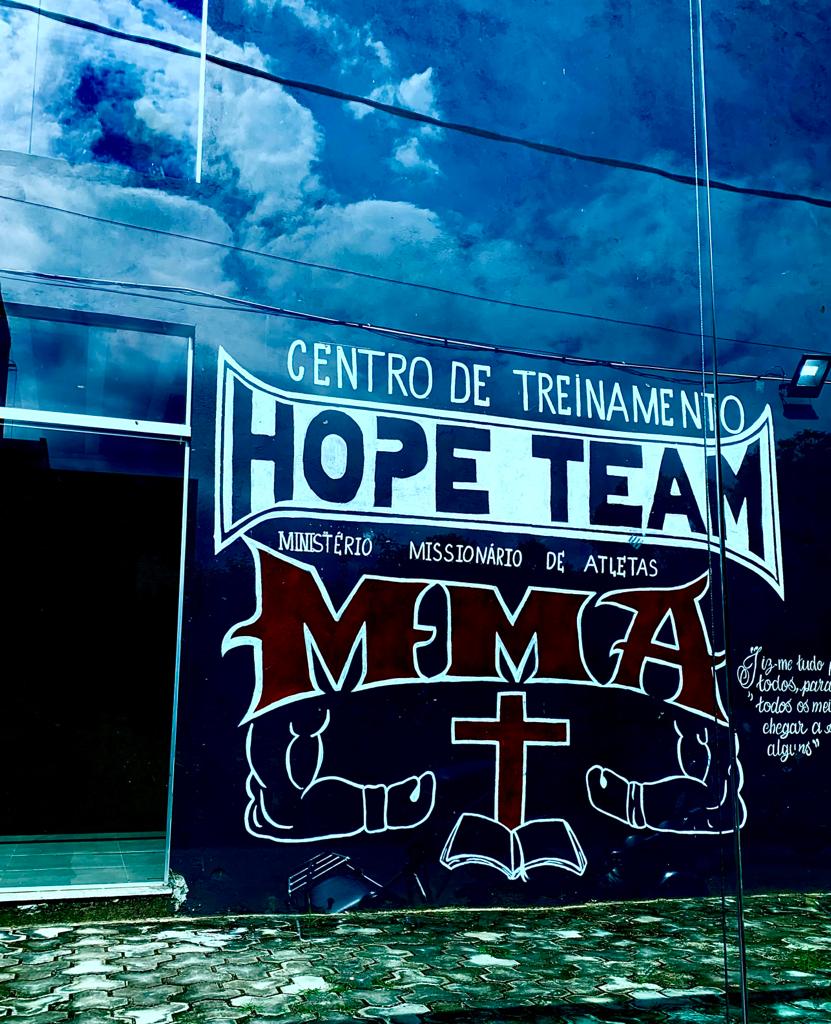 CENTRO DE TREINAMENTO
HOPE TEAM
MINISTÉRIO MISSIONÁRIO DE ATLETAS
M-MMA
Fiz-me tudo
todos, para
todos os
chegar a
alguns"